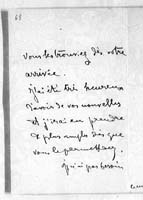 63
vous les trouviez dès votre
arrivée.
j'ai été très heureux
d'avoir de vos nouvelles
et j'irai en prendre
de plus amples dès que
vous le permettrez.
je n'ai pas besoin